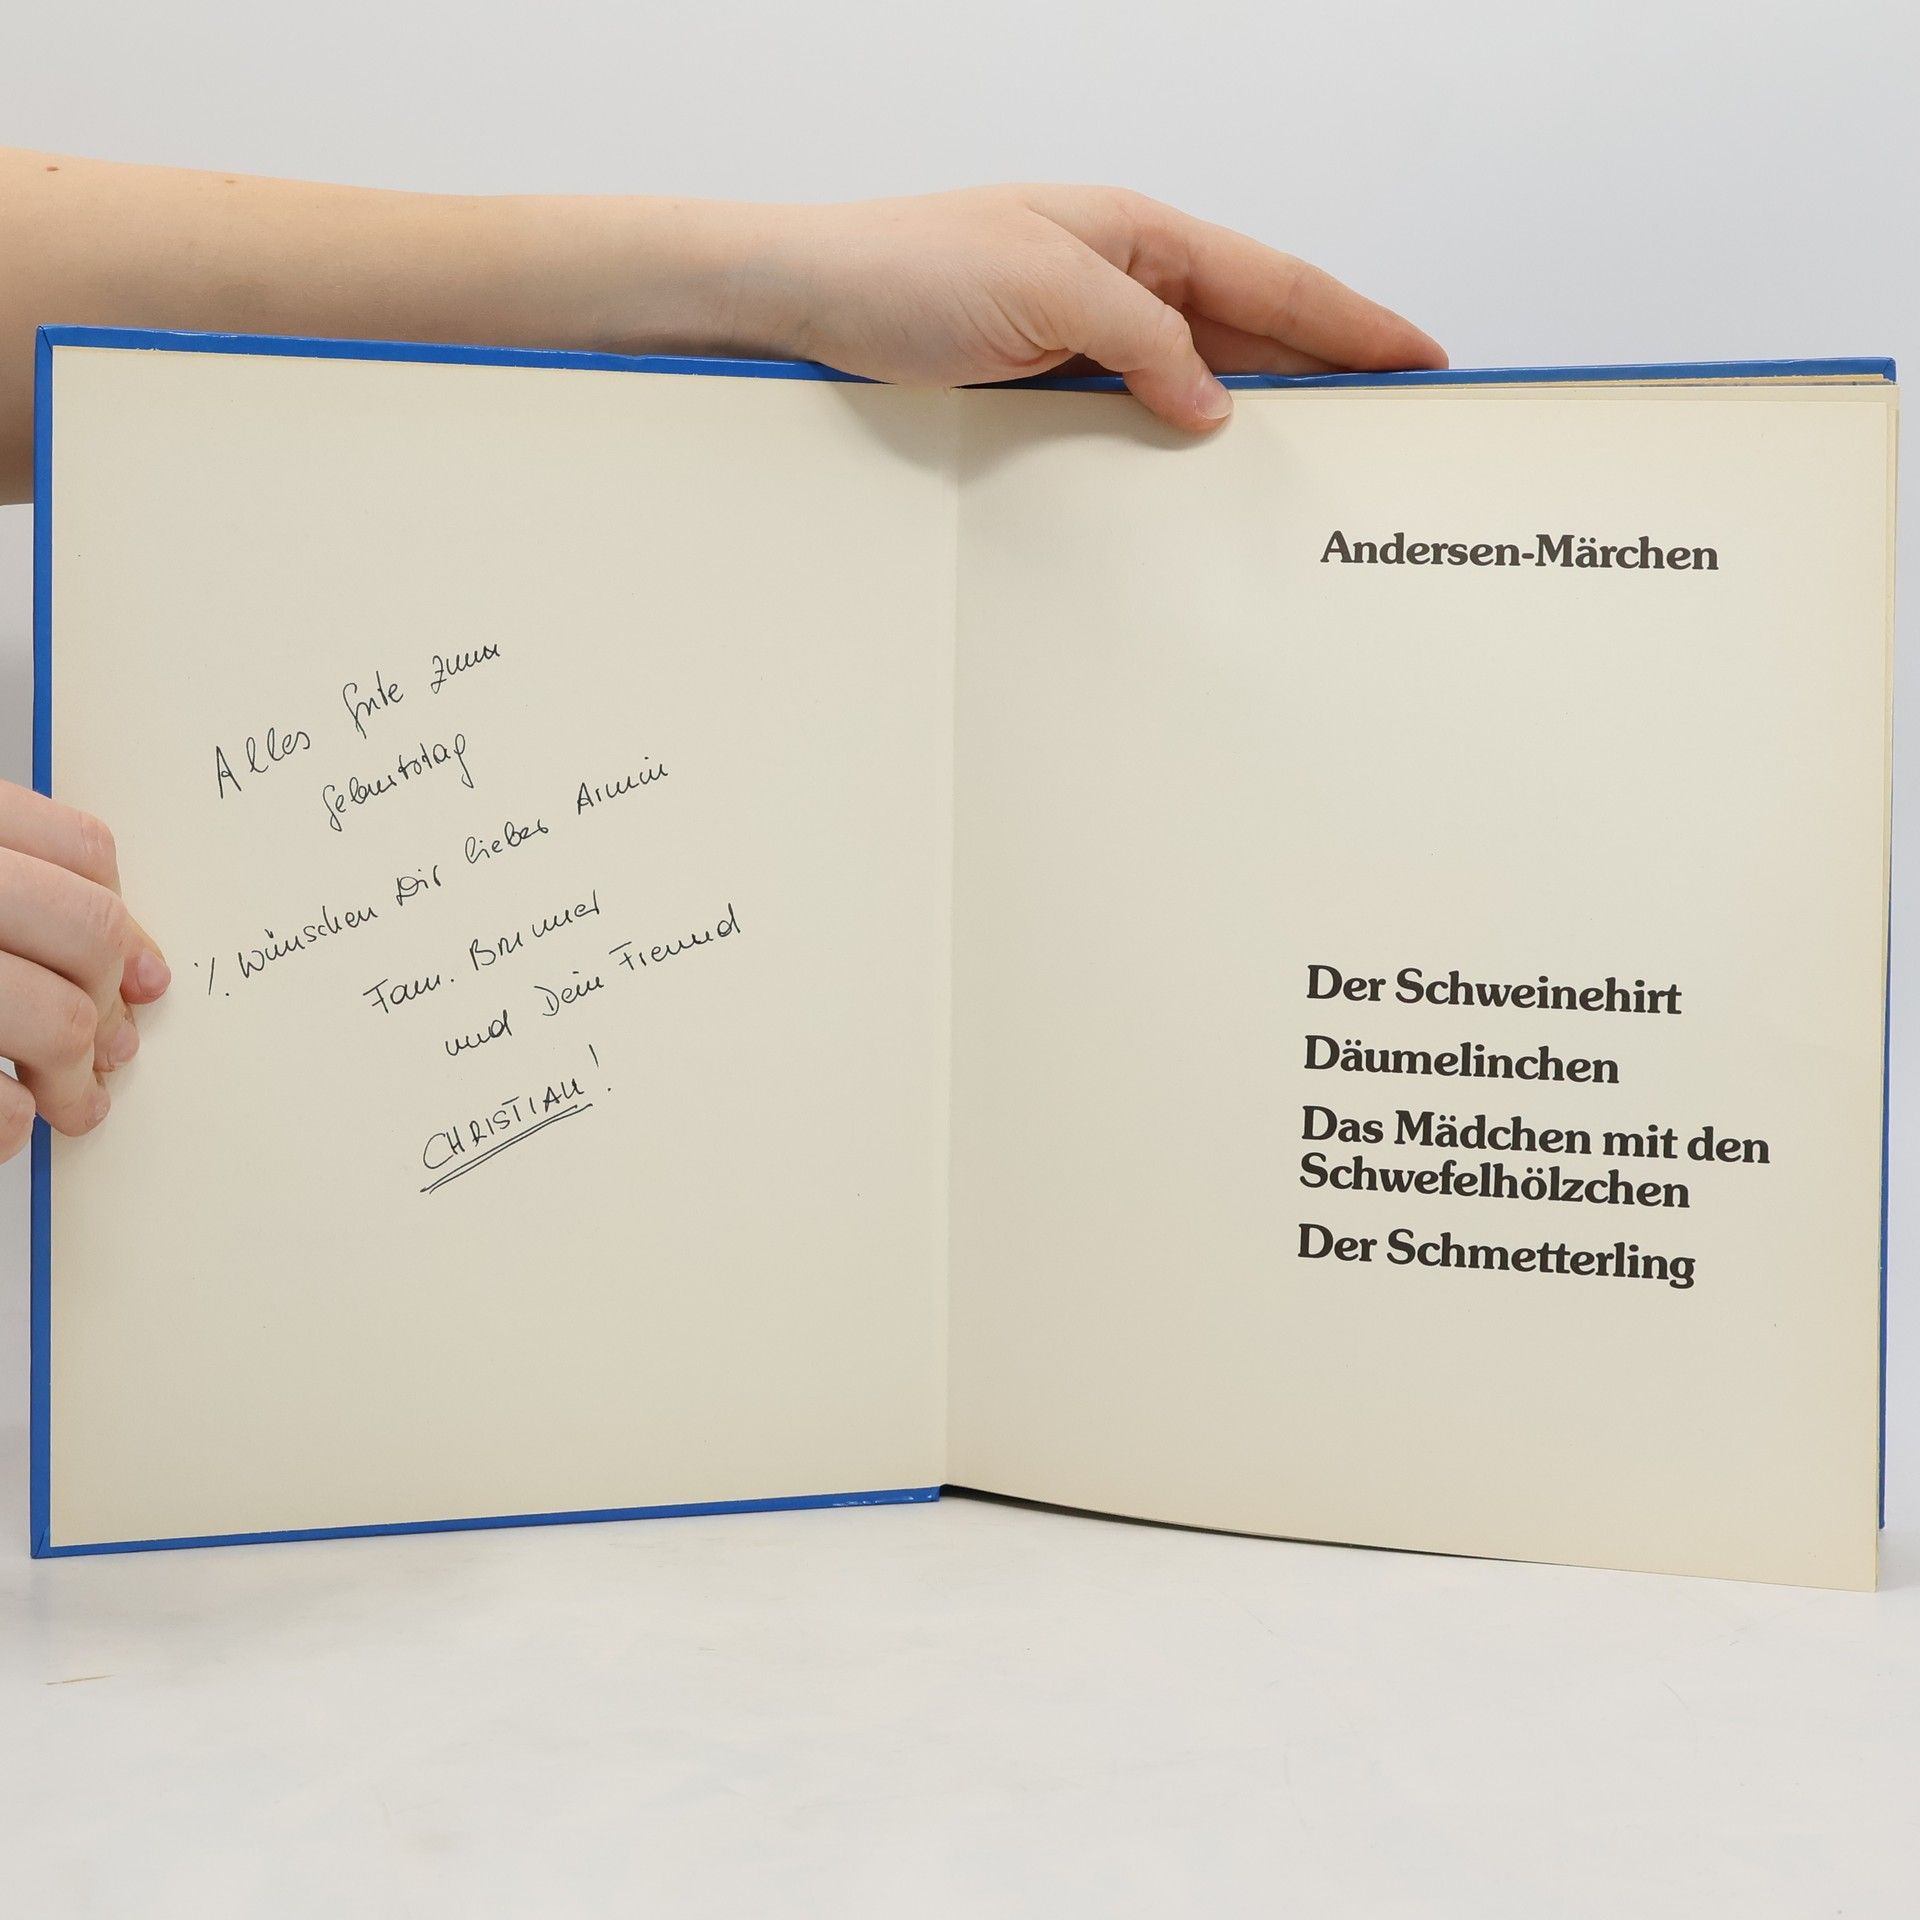 Alles Gute zum
Geburtstag
./. wünschen Dir lieber Armin
Fam. Brunner
und Dein Freund
CHRISTIAN!
Andersen-Märchen
Der Schweinehirt
Däumelinchen
Das Mädchen mit den
Schwefelhölzchen
Der Schmetterling